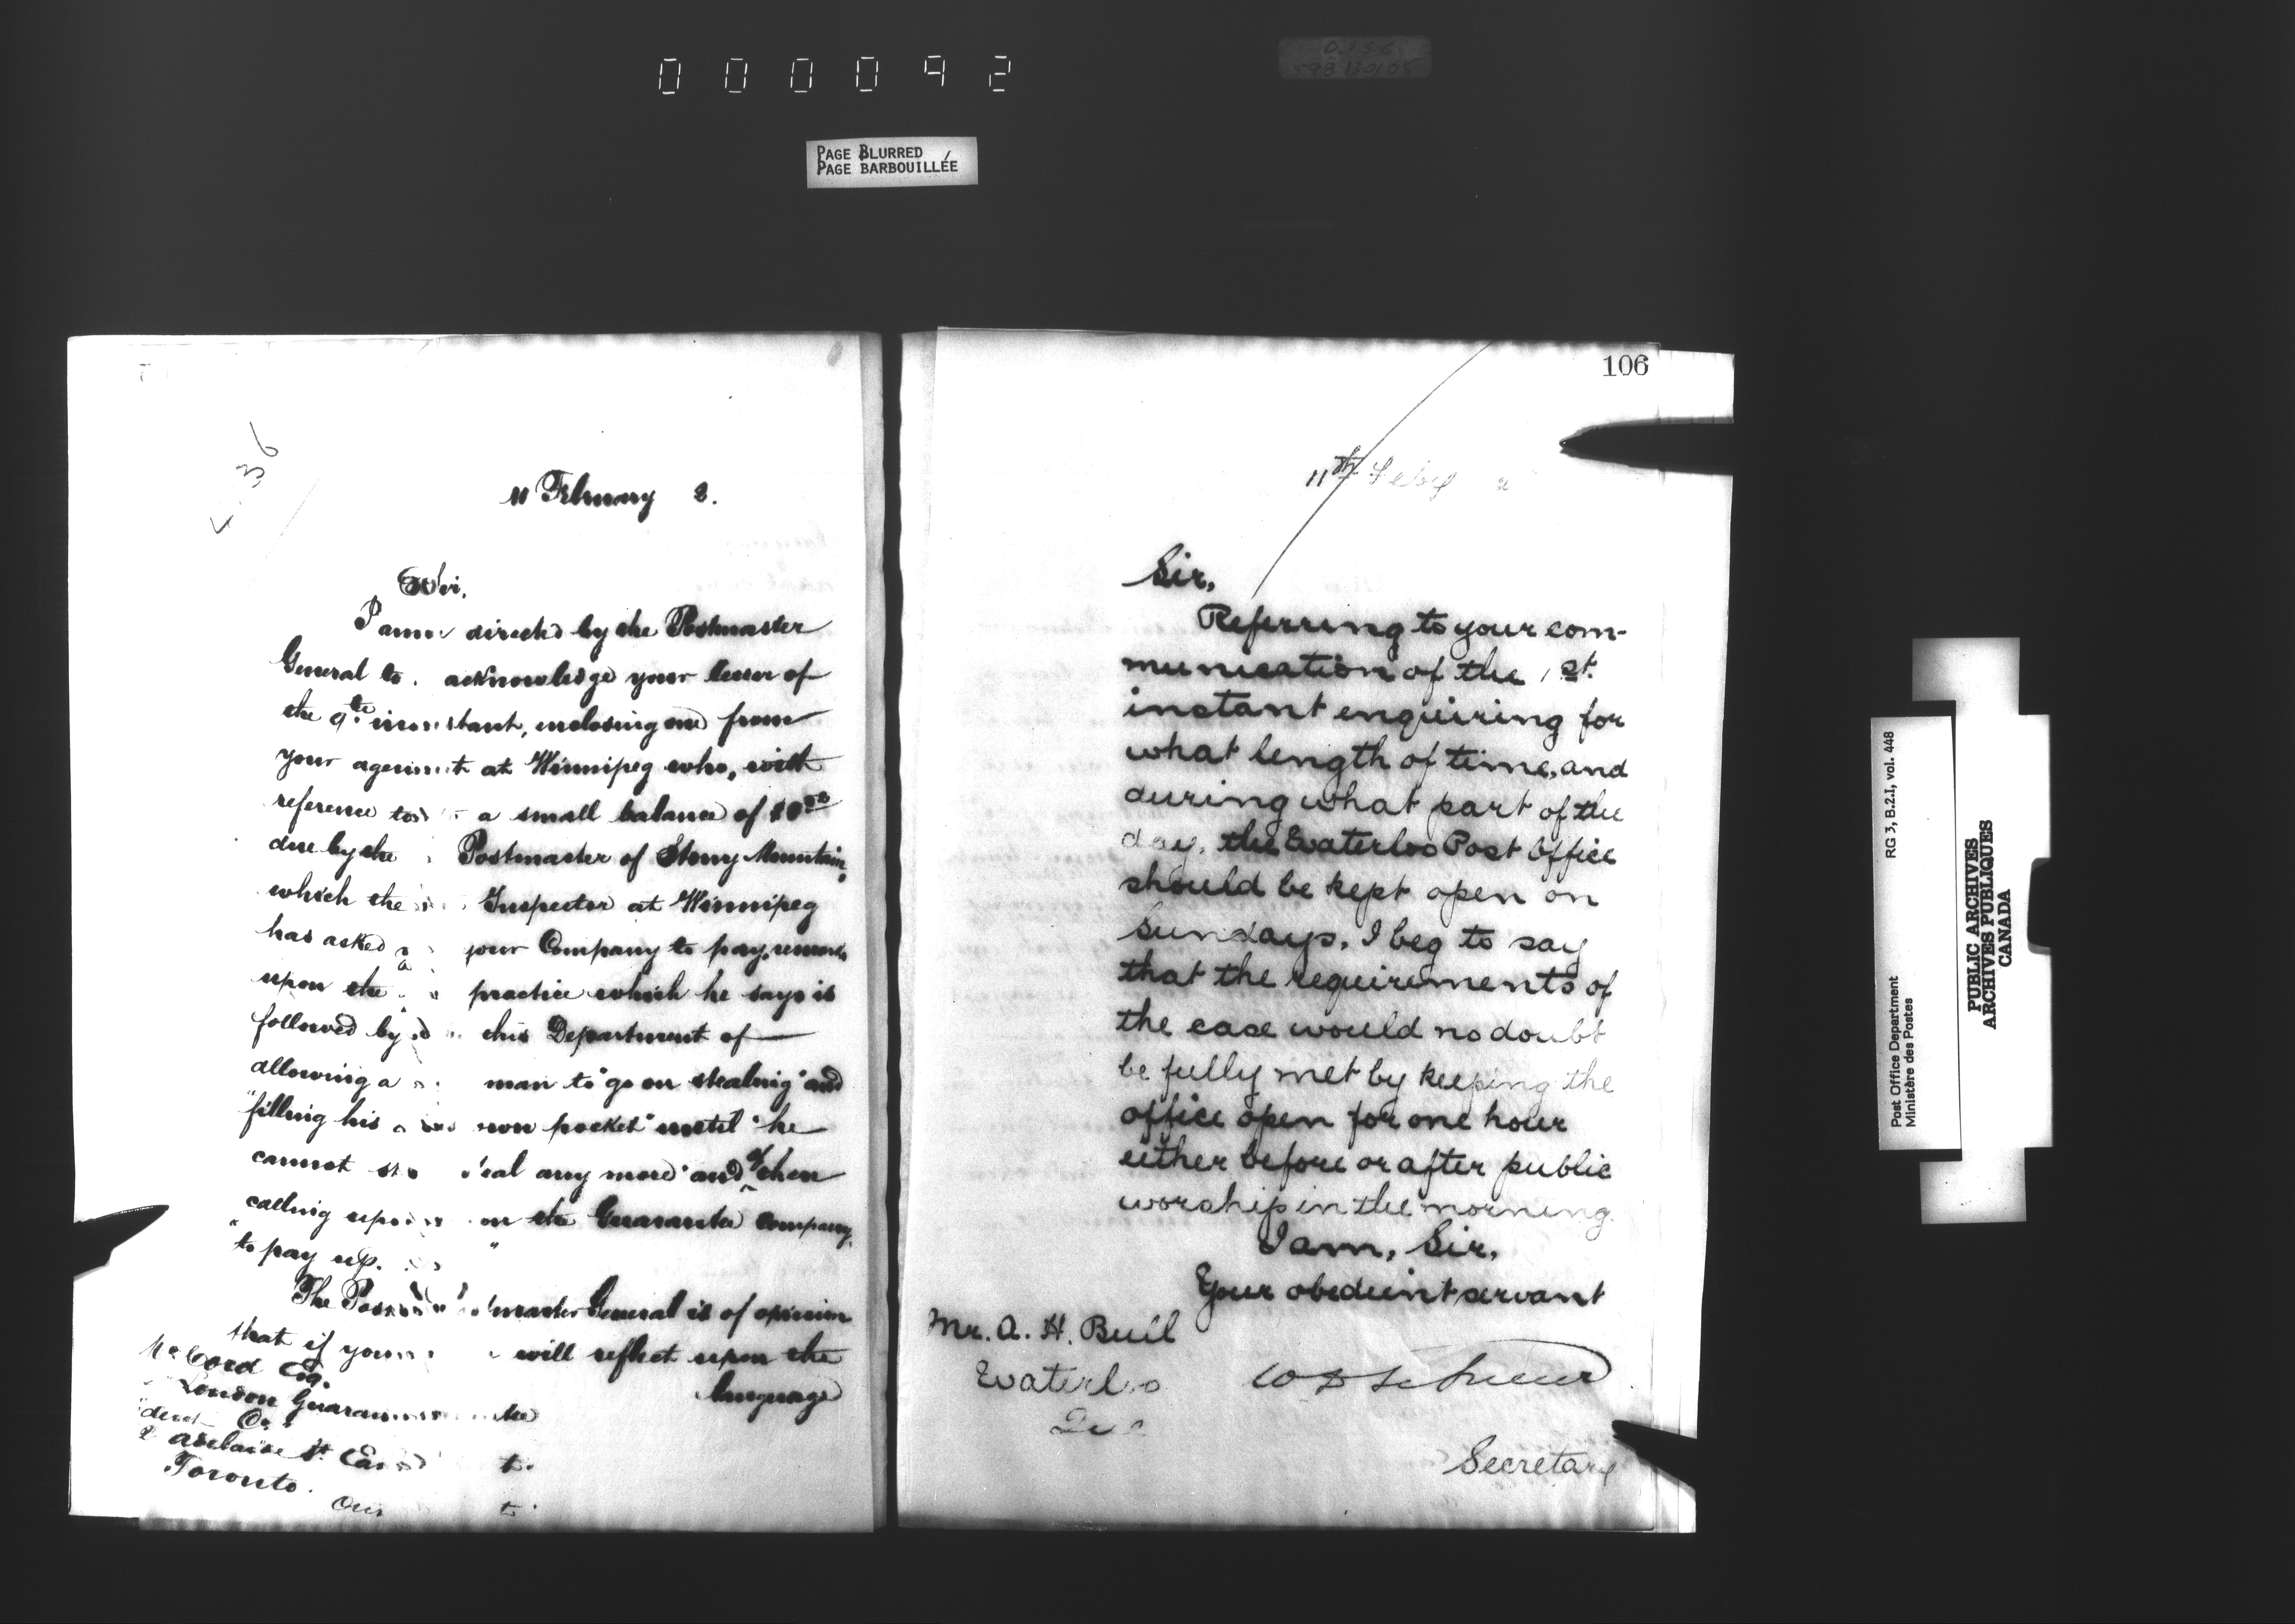 000092
PAGE BLURRED
PAGE BARBOUILLÉE
36
11 February 2.
Sir,
I am directed by the Postmaster
General to acknowledge your letter of
the 9th instant, enclosing one from
your agent at Winnipeg who, with
reference to a small balance of
due by the Postmaster of Stony Mountain,
which the Inspector at Winnipeg
has asked your Company to pay, remarks
upon the practice which he says is
followed by this Department of
allowing a man to "go on stealing" and
"filling his own pocket" until "he
cannot steal any more" and of then
calling upon the Guarantee Company,
"to pay up."
The Postmaster General is of opinion
that if you will reflect upon the
language
McCord Esq.
London Guarantee
dent Co.
2 Adelaide St. East
Toronto.
Ont
106
11th Feby 2
Sir,
Referring to your com-
munication of the 1st.
instant enquiring for
what length of time, and
during what part of the
day, the Waterloo Post Office
should be kept open on
Sundays, I beg to say
that the requirements of
the case would no doubt
be fully met by keeping the
office open for one hour
either before or after public
worship in the morning.
I am, Sir,
Your obedient servant
Mr. A. H. Buil
Waterloo
Secretary
Post Office Department
Ministère des Postes
RG 3, B.2.I, vol. 448
PUBLIC ARCHIVES
ARCHIVES PUBLIQUES
CANADA